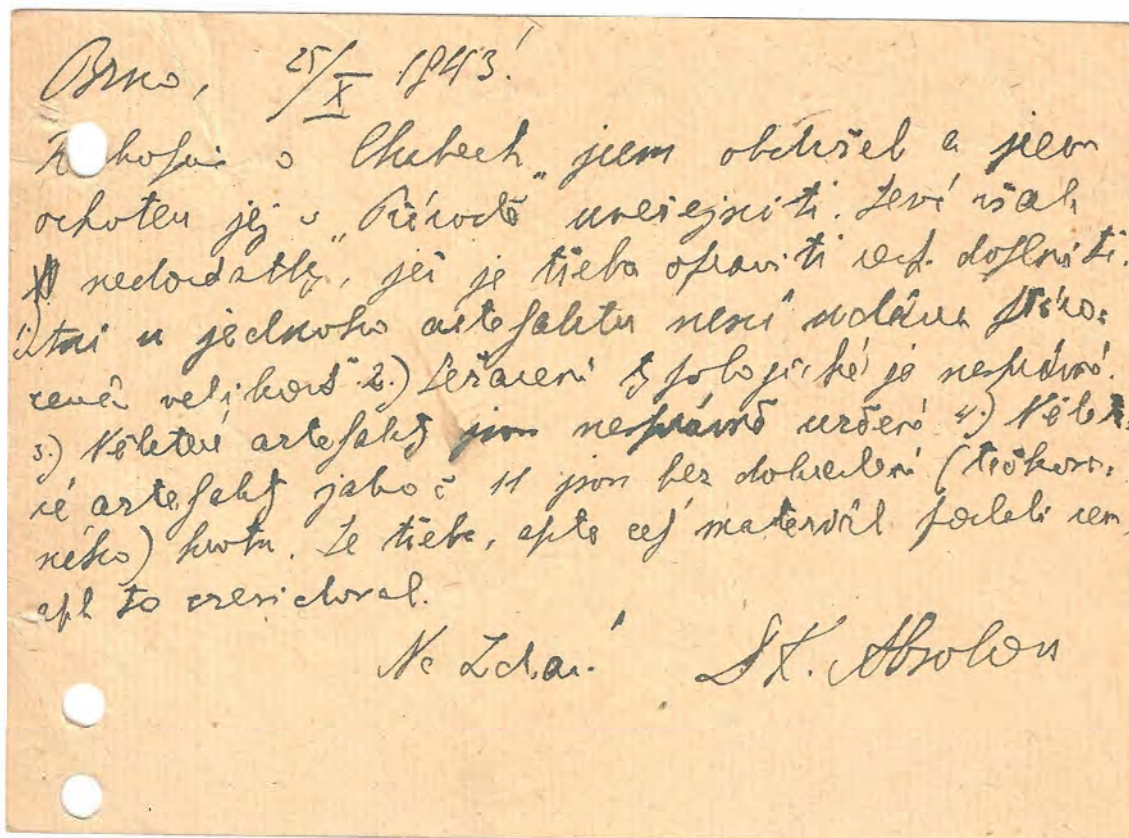 Brno, 25/X 1943.
o Chabech" jsem obdržel a jsem
ochoten jej v „Přírodě uveřejniti. Jeví však
nedostatky, jež je třeba opraviti resp. doplniti.
1) u jednoho artefaktu není udána
velikost. 2.) Zařazení typologické je nesprávné.
3.) Některé artefakty jsou nesprávně určené 4.) Někte-
ré artefakty jako č 11 jsou bez dokreslení (tečkova-
ného) hrotu. Je třeba, aby celý materiál
to zrevidoval.
Na Zdar! Dr. K. Absolon